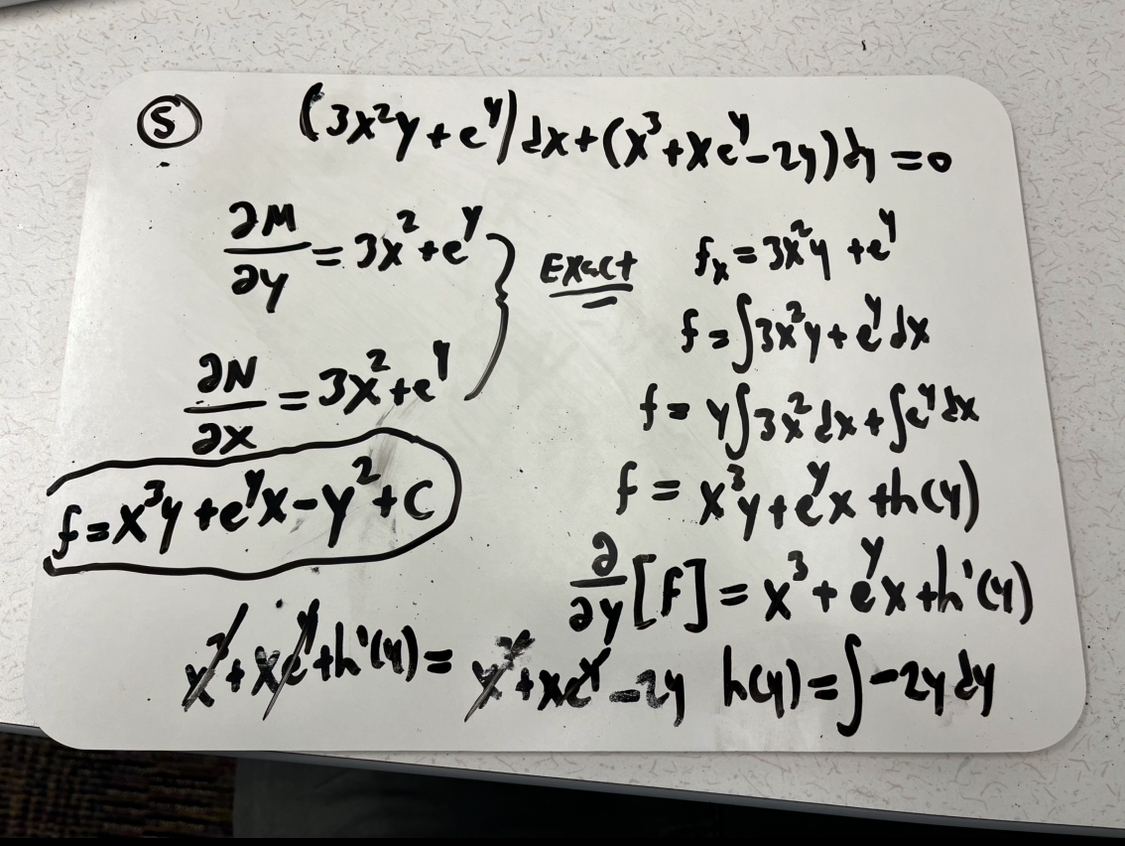 ⑤ (3x²y + e^y) dx + (x³ + xe^y - 2y) dy = 0
∂M/∂y = 3x² + e^y
∂N/∂x = 3x² + e^y
} Exact
f_x = 3x²y + e^y
f = ∫3x²y + e^y dx
f = y∫3x² dx + ∫e^y dx
f = x³y + e^y x + h(y)
∂/∂y [f] = x³ + e^y x + h'(y)
x³ + xe^y + h'(y) = x³ + xe^y - 2y
h(y) = ∫-2y dy
f = x³y + e^y x - y² + C